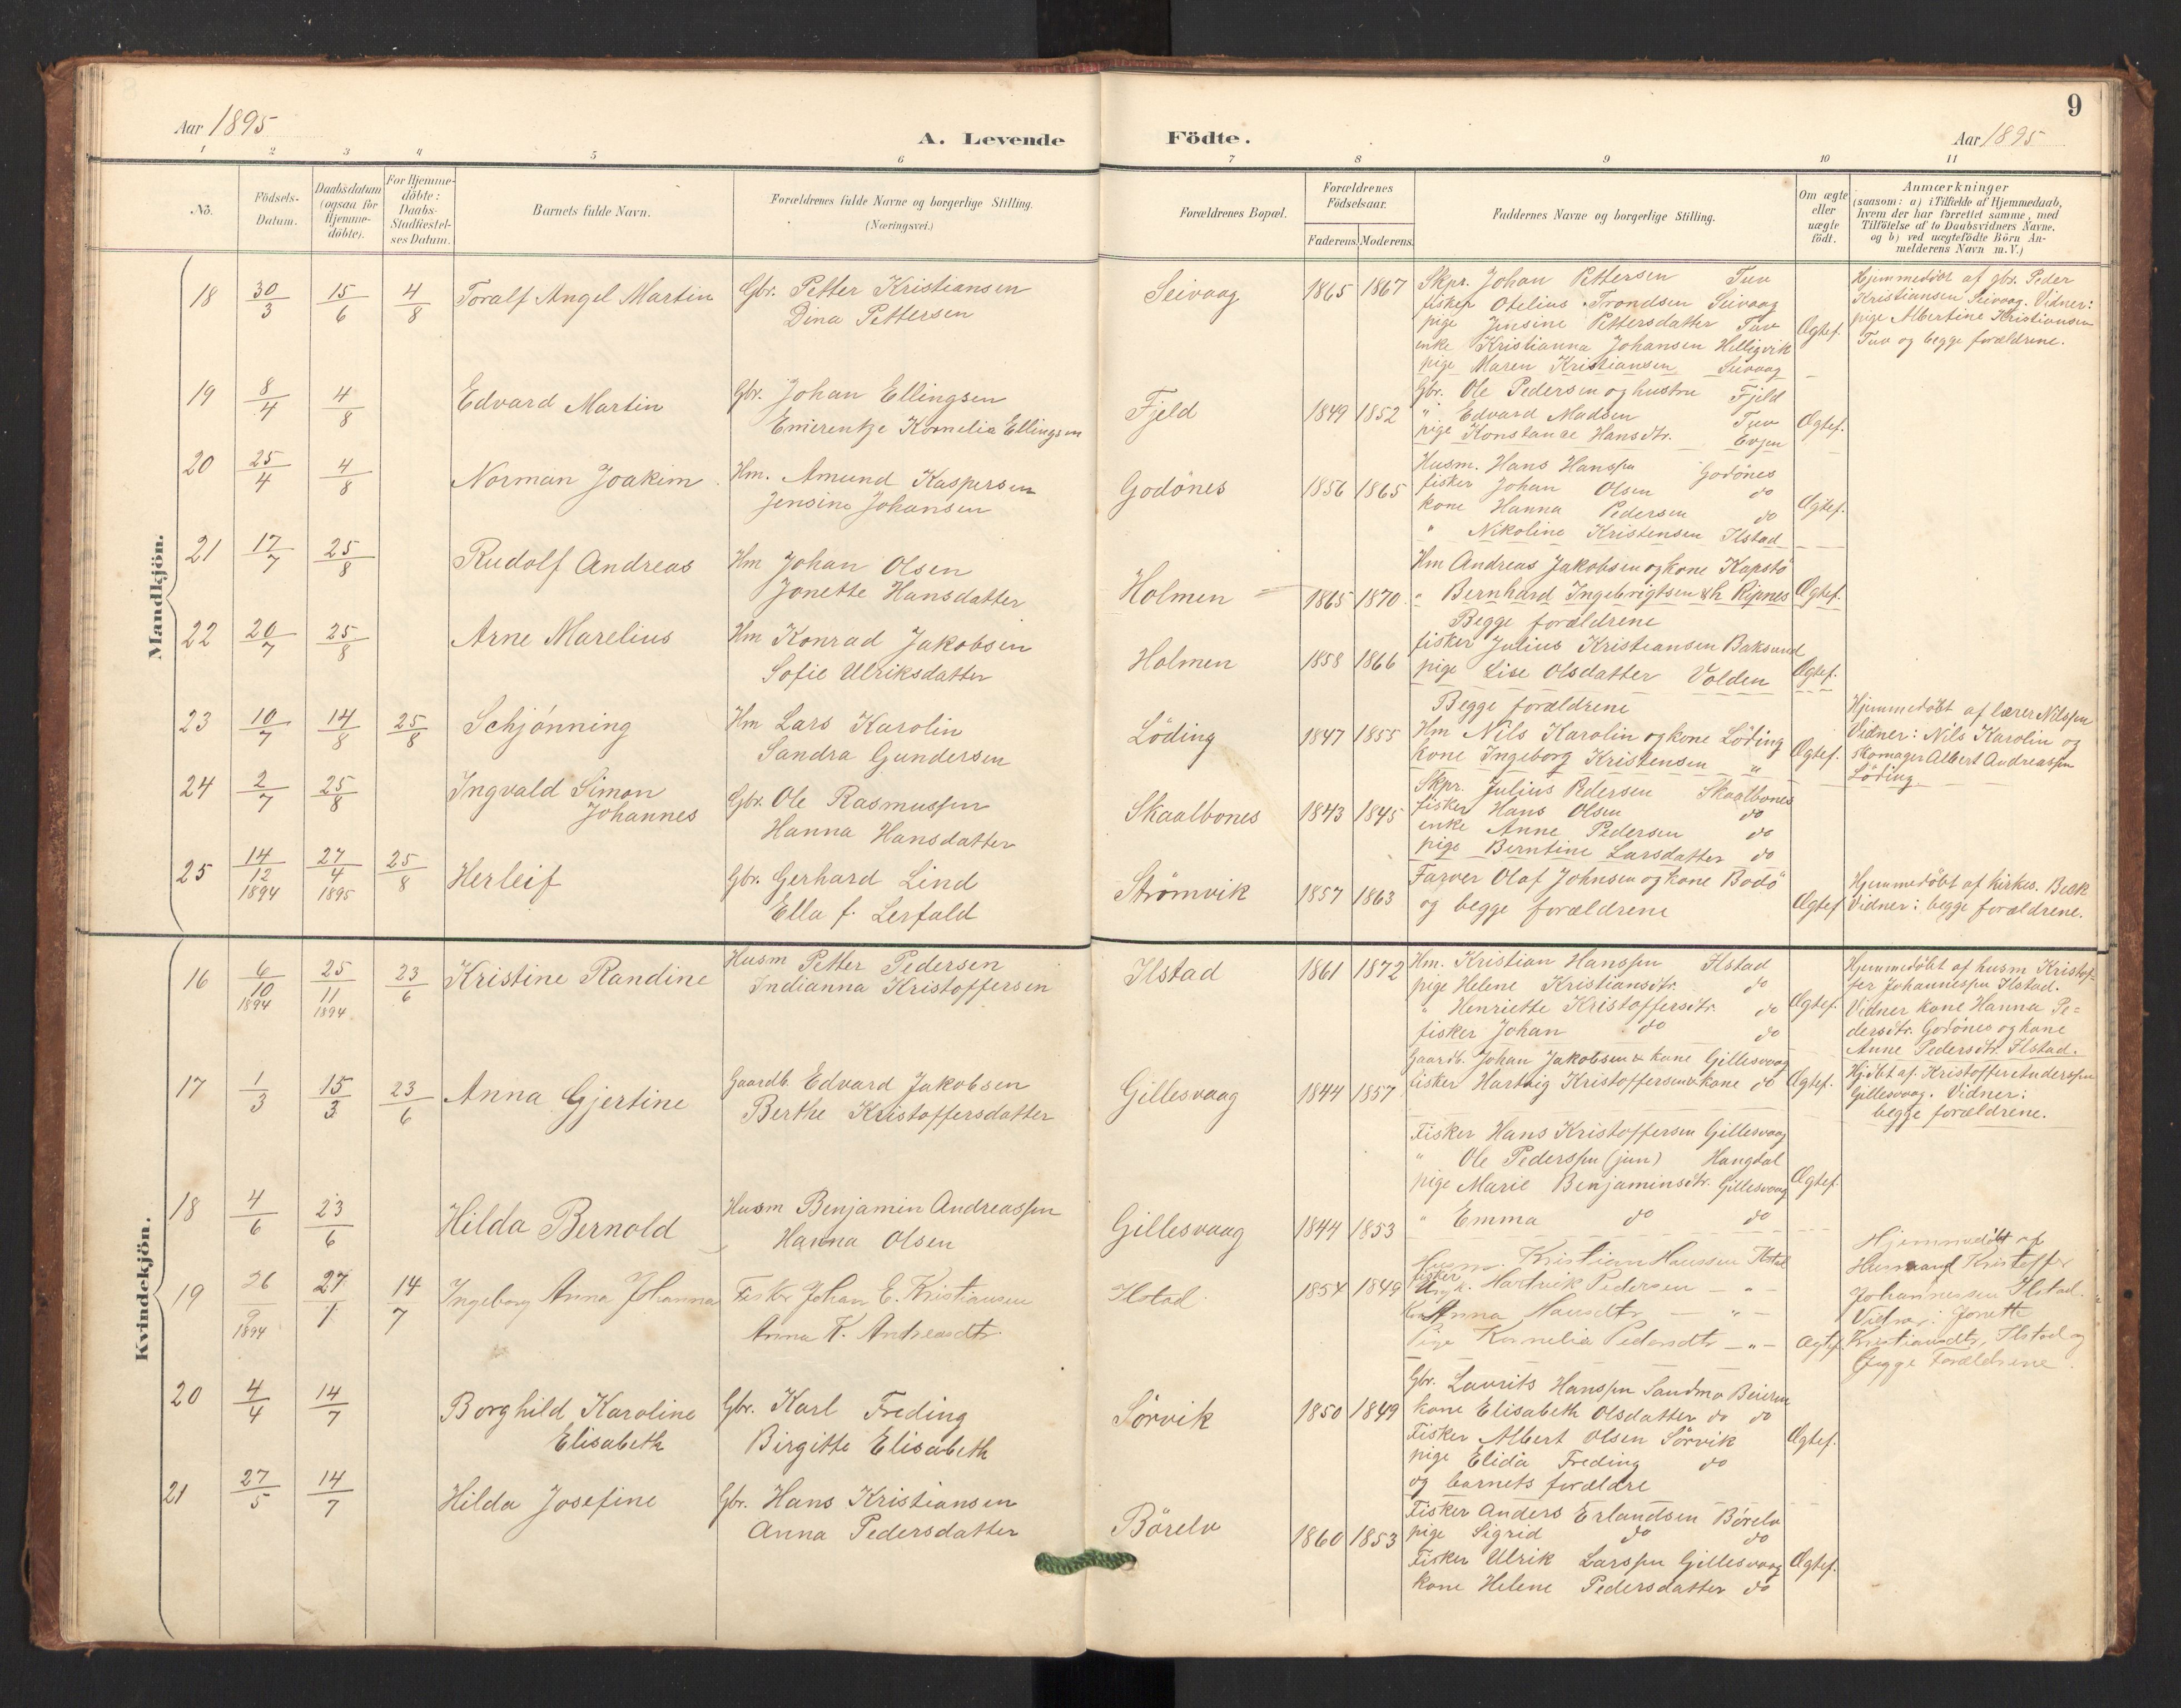 Aar 1895
A. Levende
Födte.
Aar 1895
9
1 2 3 4 5 6 7 8 9 10 11
No.
Födsels-Datum.
Daabsdatum (ogsaa for Hjemme-döbte).
For Hjemme-döbte: Daabs-Stadfæstel-ses Datum.
Barnets fulde Navn.
Forældrenes fulde Navne og borgerlige Stilling.
(Næringsvei.)
Forældrenes Bopæl.
Forældrenes Födselsaar.
Faderens. Moderens.
Faddernes Navne og borgerlige Stilling.
Om ægte eller uægte födt.
Anmærkninger
(saasom: a) i Tilfælde af Hjemmedaab,
hvem der har forrettet samme, med
Tilföielse af to Daabsvidners Navne,
og b) ved uægtefödte Börn An-
melderens Navn m.V.)
Mandkjön.
18 30/3 15/6 4/8 Toralf Angel Martin
Gbr. Petter Kristiansen
Dina Pettersen
Seivaag 1865 1867
Skpr. Johan Pettersen Tuv
fisker Otelius Trondsen Seivaag
pige Jensine Pettersdatter Tuv
enke Kristianna Johansen Helligvik
pige Maren Kristiansen Seivaag
Ægtef.
Hjemmedöbt af gbr. Peder
Kristiansen Seivaag. Vidner:
pige Albertine Kristiansen
Tuv og begge forældrene.
19 8/4 4/8 Edvard Martin
Gbr. Johan Ellingsen
Emerentze Kornelia Ellingsen
Fjeld 1849 1852
Gbr. Ole Pedersen og hustru Fjeld
" Edvard Madsen Tuv
pige Konstanse Hansdtr. Evjen
Ægtef.
20 25/4 4/8 Norman Joakim
Hm. Amund Kaspersen
Jensine Johansen
Godönes 1856 1865
Husm. Hans Hanssen Godönes
fisker Johan Olsen do
kone Hanna Pedersen do
" Nikoline Kristensen Ilstad
Ægtef.
21 17/7 25/8 Rudolf Andreas
Hm Johan Olsen
Jonette Hansdatter
Holmen 1865 1870
Hm Andreas Jakobsen og kone Kapstö
" Bernhard Ingebrigtsen & h Ripnes
Begge forældrene
Ægtef.
22 20/7 25/8 Arne Marelius
Hm Konrad Jakobsen
Sofie Ulriksdatter
Holmen 1858 1866
fisker Julius Kristiansen Baksund
pige Lise Olsdatter Volden
Begge forældrene
Ægtef.
23 10/7 14/8 25/8 Schjönning
Hm Lars Karolin
Sandra Gundersen
Löding 1847 1855
Hm Nils Karolin og kone Löding
kone Ingeborg Kristensen "
Ægtef.
Hjemmedöbt af lærer Nilssen
Vidner: Nils Karolin og
skomager Albert Andreassen
Löding.
24 2/7 25/8 Ingvald Simon
Johannes
Gbr. Ole Rasmussen
Hanna Hansdatter
Skaalbones 1843 1845
Skpr. Julius Pedersen Skaalbones
fisker Hans Olsen do
enke Anne Pedersen do
pige Berntine Larsdatter do
25 14/12 1894 27/4 1895 25/8 Herleif
Gbr. Gerhard Lind
Ella f. Lerfald
Strömvik 1857 1863
Farver Olaf Johnsen og kone Bodö
og begge forældrene
Ægtef
Hjemmedöbt af kirkes. Beck
Vidner: begge forældrene.
Kvindekjön.
16 6/10 1894 25/11 1894 23/6 Kristine Randine
Husm Petter Pedersen
Indianna Kristoffersen
Ilstad 1861 1872
Hm. Kristian Hanssen Ilstad
pige Helene Kristiansdtr. do
" Henriette Kristoffersdtr. do
fisker Johan do do
Ægtef.
Hjemmedöbt af husm Kristof-
fer Johannessen Ilstad.
Vidner kone Hanna Pe=
dersdtr. Godönes og kone
Anne Pedersdtr. Ilstad.
17 1/3 15/3 23/6 Anna Gjertine
Gaardb. Edvard Jakobsen
Berthe Kristoffersdatter
Gillesvaag 1844 1857
Gaardb. Johan Jakobsen & kone Gillesvaag
fisker Hartvig Kristoffersen & kone do
Ægtef.
Hjdöbt af Kristoffer Anderssen
Gillesvaag. Vidner:
begge forældrene.
18 4/6 23/6 Hilda Bernold
Husm Benjamin Andreassen
Hanna Olsen
Gillesvaag 1844 1853
Fisker Hans Kristoffersen Gillesvaag
" Ole Pederssen (jun) Hangdal
pige Marie Benjaminsdtr. Gillesvaag
" Emma do do
Ægtef.
19 26/9 1894 27/1 14/7 Ingeborg Anna Johanna
Fisker Johan E. Kristiansen
Anna K. Andreasdtr.
Ilstad 1854 1849
Husm. Kristian Hanssen Ilstad
fisker Ungk. Hartvik Pedersen — " —
Kone Anna Hansdtr — " —
Pige Kornelia Pedersdtr — " —
Ægtef.
Hjemmedöbt af
Husmand Kristoffer
Johannessen Ilstad.
Vidner: Jonette
Kristiansdtr, Ilstad og
begge Forældrene.
20 4/4 14/7 Borghild Karoline
Elisabeth
Gbr. Karl Freding
Birgitte Elisabeth
Sörvik 1850 1849
Gbr. Laurits Hanssen Sandmo Beieren
kone Elisabeth Olsdatter do do
Fisker Albert Olsen Sörvik
pige Elida Freding do
og barnets forældre
Ægtef.
21 27/5 14/7 Hilda Josefine
Gbr. Hans Kristiansen
Anna Pedersdatter
Börelv 1860 1853
Fisker Anders Erlandsen Börelv
pige Sigrid do do
Fisker Ulrik Larssen Gillesvaag
kone Helene Pedersdatter do
Ægtef.